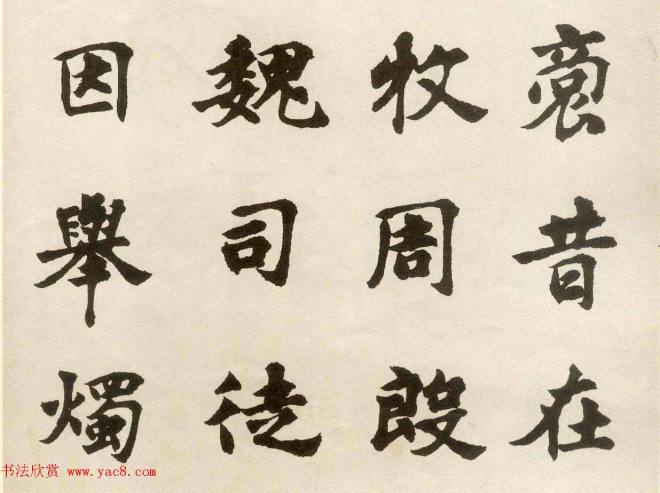 裔昔在
牧周殷
魏司徒
因舉燭
书法欣赏 www.yac8.com